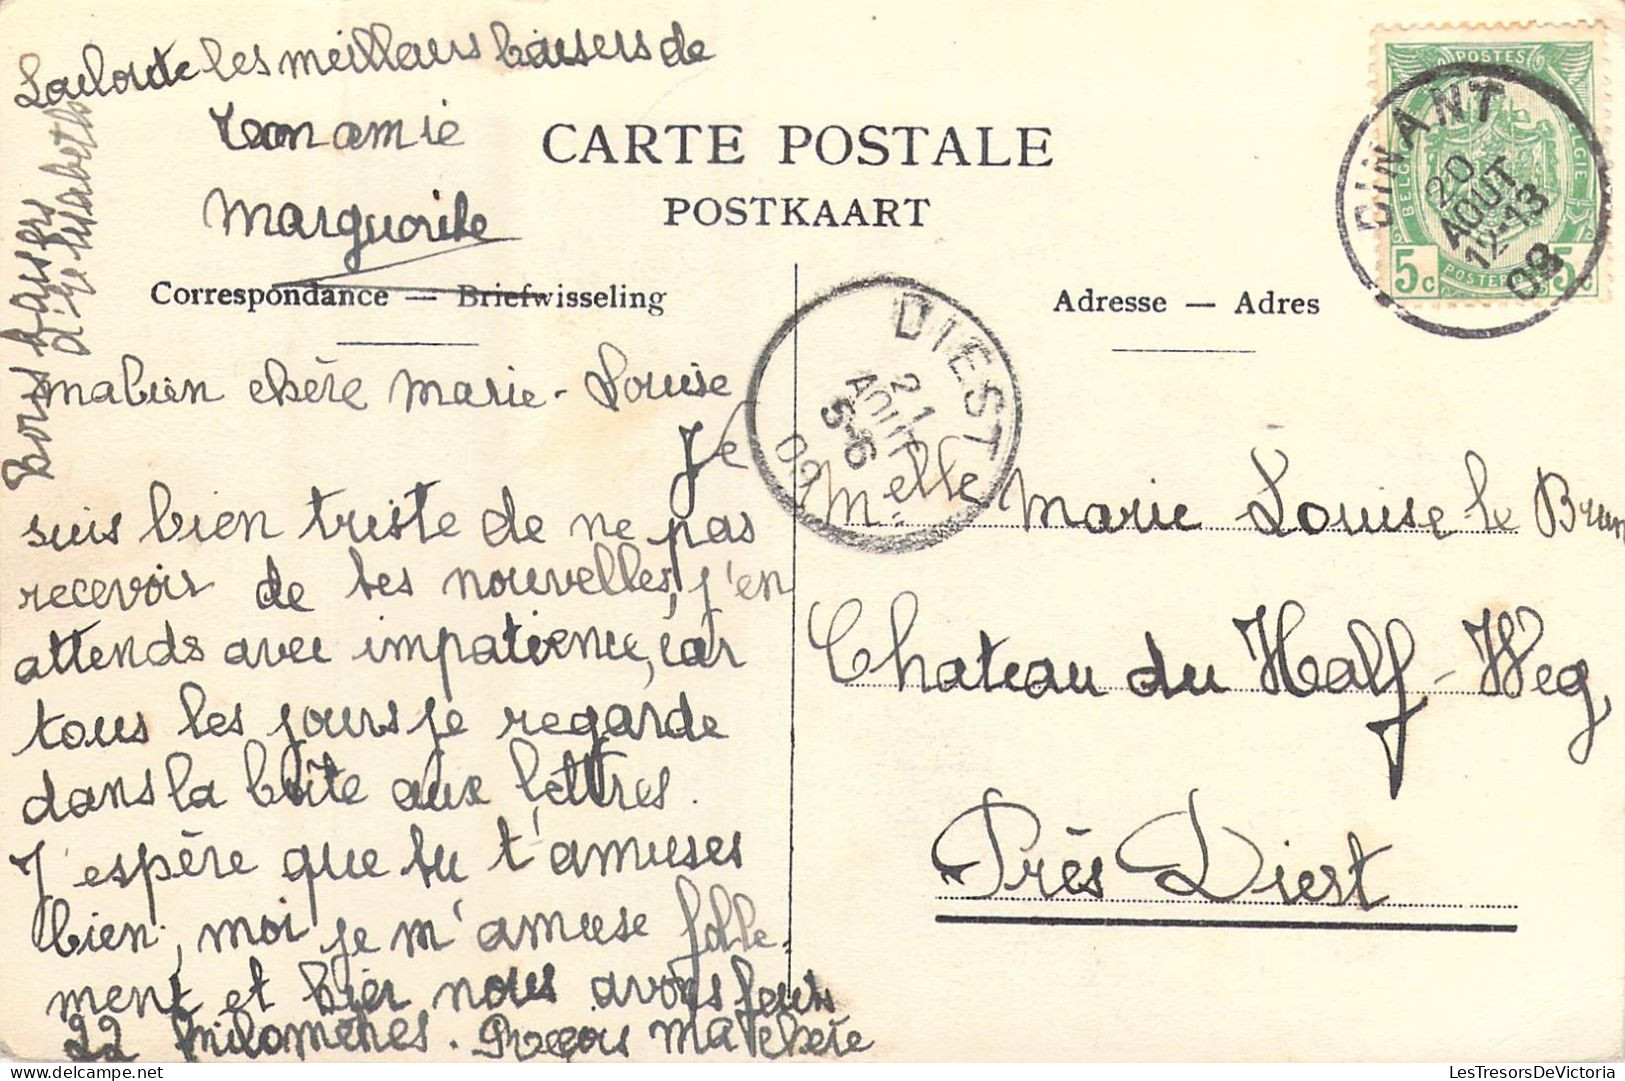 Louloute les meilleurs baisers de
ton amie
Marguerite
Bons baisers
d'Elisabeth
CARTE POSTALE
POSTKAART
Correspondance — Briefwisseling
Adresse — Adres
ma bien chère Marie-Louise
Je
suis bien triste de ne pas
recevoir de tes nouvelles, j'en
attends avec impatience, car
tous les jours je regarde
dans la boîte aux lettres.
J'espère que tu t'amuses
bien, moi je m'amuse folle-
ment et hier nous avons fait
22 kilomètres. Reçois ma chère
Melle Marie Louise le Brun
Chateau du Half-Weg
Près Diest
POSTES
BELGIE
5c 5c
POSTERIJEN
DINANT
20
AOUT
12-13
09
DIEST
21
AOUT
5-6
09
LesTresorsDeVictoria